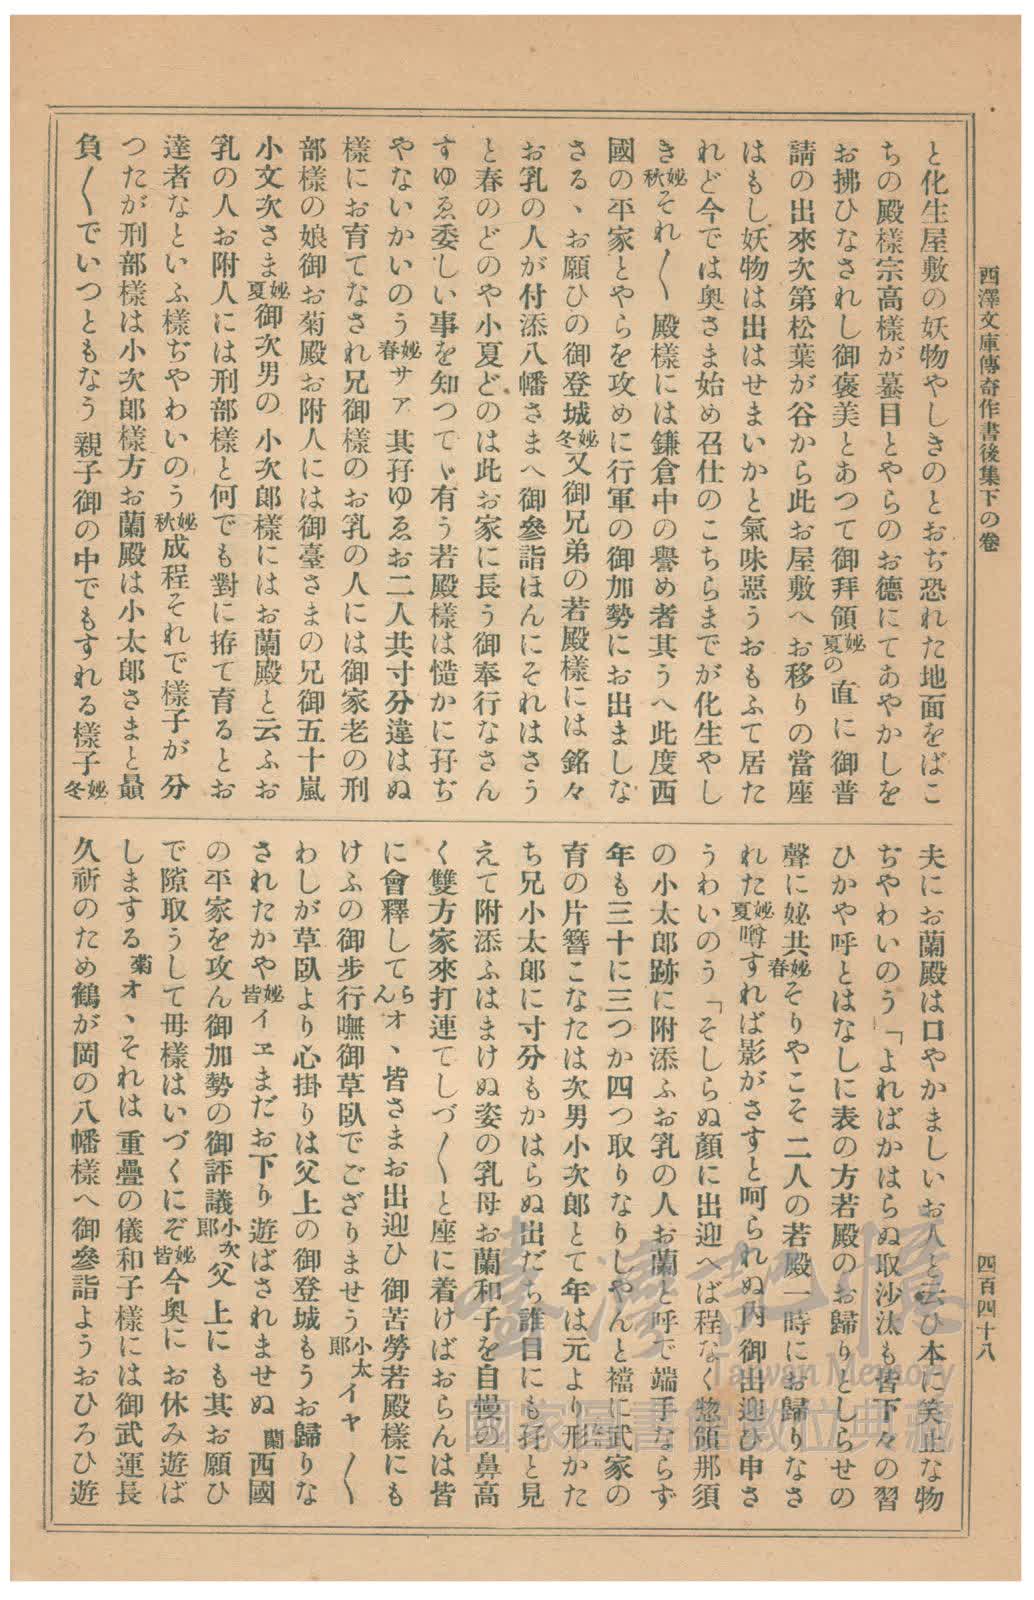 西澤文庫傳奇作書後集下の卷
四百四十八
と化生屋敷の妖物やしきのとおぢ恐れた地面をばこ
ちの殿樣宗高樣が蟇目とやらのお德にてあやかしを
お拂ひなされし御褒美とあつて御拜領妼夏の直に御普
請の出來次第松葉が谷から此お屋敷へお移りの當座
はもし妖物は出はせまいかと氣味惡うおもふて居た
れど今では奧さま始め召仕のこちらまでが化生やし
き妼秋それ〳〵殿樣には鎌倉中の譽め者其うへ此度西
國の平家とやらを攻めに行軍の御加勢にお出ましな
さるヽお願ひの御登城妼冬又御兄弟の若殿樣には銘々
お乳の人が付添八幡さまへ御參詣ほんにそれはさう
と春のどのや小夏どのは此お家に長う御奉行なさん
すゆゑ委しい事を知つてヾ有う若殿樣は慥かに孖ぢ
やないかいのう妼春サァ其孖ゆゑお二人共寸分違はぬ
樣にお育てなされ兄御樣のお乳の人には御家老の刑
部樣の娘御お菊殿お附人には御臺さまの兄御五十嵐
小文次さま妼夏御次男の小次郎樣にはお蘭殿と云ふお
乳の人お附人には刑部樣と何でも對に揃て育るとお
達者なといふ樣ぢやわいのう妼秋成程それで樣子が分
つたが刑部樣は小次郎樣方お蘭殿は小太郎さまと贔
負〳〵でいつともなう親子御の中でもすれる樣子妼冬
夫にお蘭殿は口やかましいお人と云ひ本に笑止な物
ぢやわいのう「よればかはらぬ取沙汰も皆下々の習
ひかや呼とはなしに表の方若殿のお歸りとしらせの
聲に妼共妼春そりやこそ二人の若殿一時にお歸りなさ
れた妼夏噂すれば影がさすと呵られぬ內御出迎ひ申さ
うわいのう「そしらぬ顏に出迎へば程なく惣領那須
の小太郎跡に附添ふお乳の人お蘭と呼で端手ならず
年も三十に三つか四つ取りなりしやんと襠に武家の
育の片簪こなたは次男小次郎とて年は元より形かた
ち兄小太郎に寸分もかはらぬ出だち誰目にも孖と見
えて附添ふはまけぬ姿の乳母お蘭和子を自慢の鼻高
く雙方家來打連てしづ〳〵と座に着けばおらんは皆
に會釋してらんオヽ皆さまお出迎ひ御苦勞若殿樣にも
けふの御步行嘸御草臥でござりませう小太郎イヤ〳〵
わしが草臥より心掛りは父上の御登城もうお歸りな
されたかや妼皆イヱまだお下り遊ばされませぬ蘭西國
の平家を攻ん御加勢の御評議小次郎父上にも其お願ひ
で隙取うして母樣はいづくにぞ妼皆今奧にお休み遊ば
しまする菊オヽそれは重疊の儀和子樣には御武運長
久祈のため鶴が岡の八幡樣へ御參詣ようおひろひ遊
臺灣記憶
Taiwan Memory
國家圖書館數位典藏